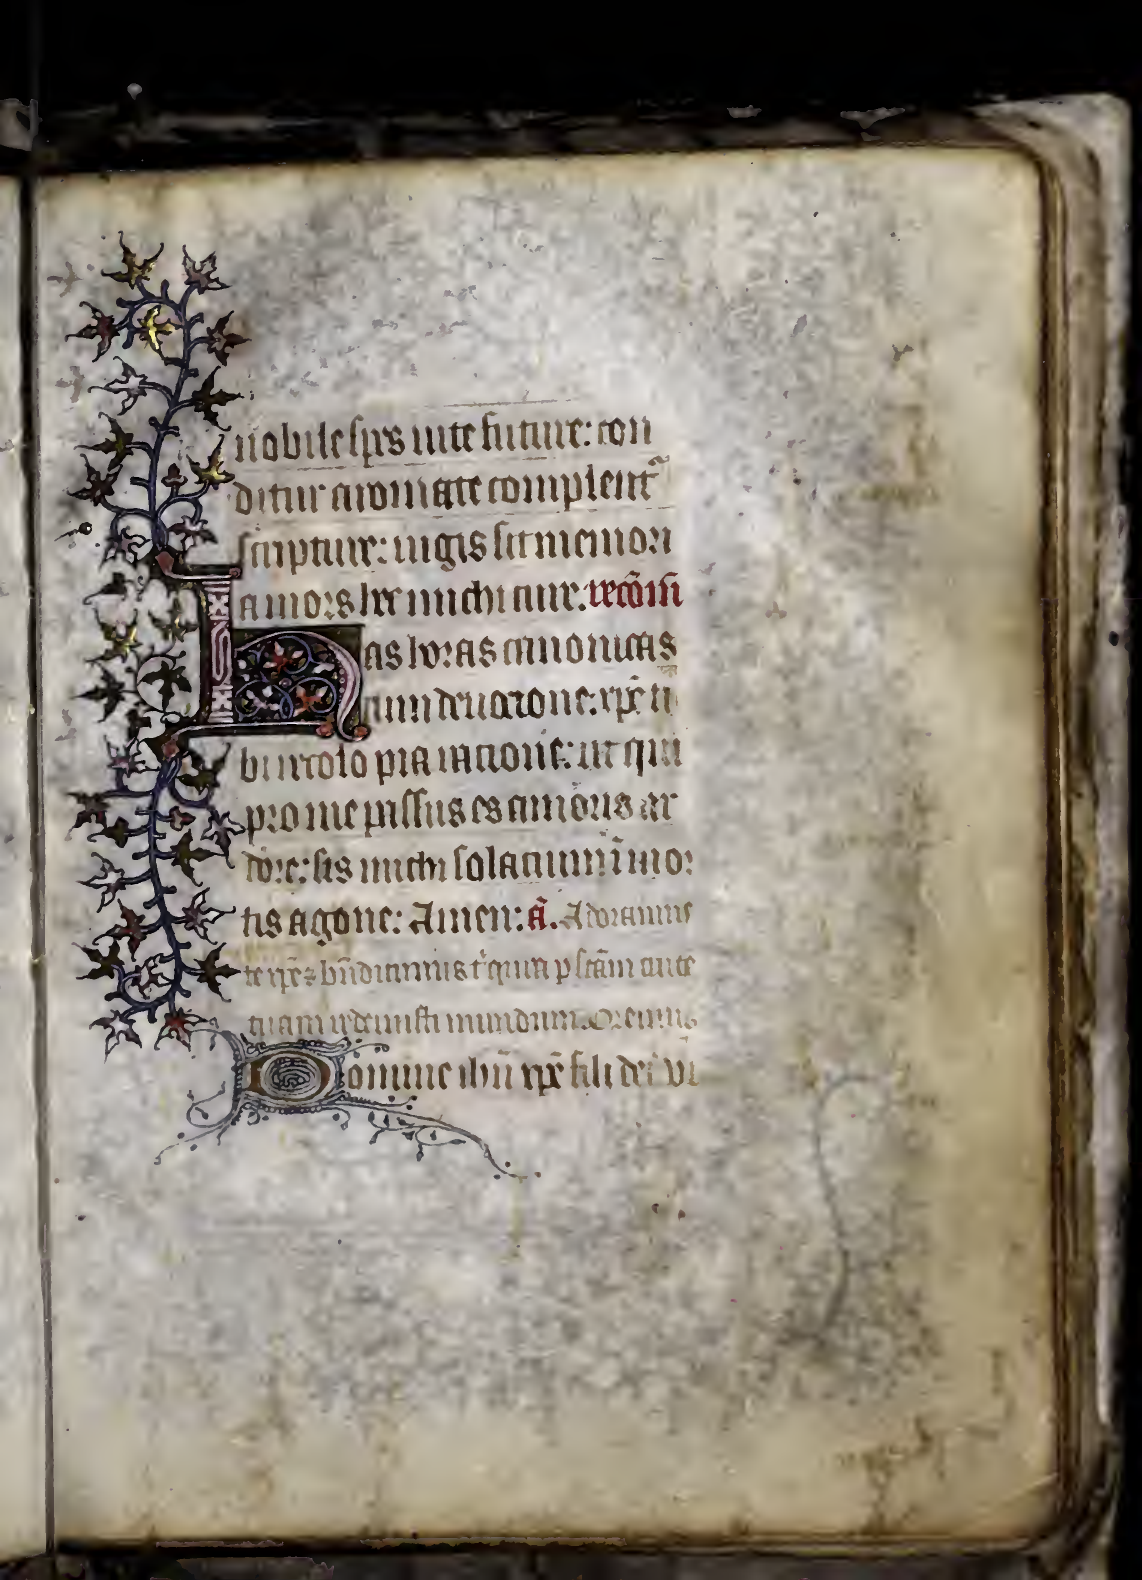 nobile spes uite future: con
ditur aromate complent̃
scripture: iugis sit memori
a mors hec michi cure. recōisi
Has horas canonicas
cum deuocione: xp̄e ti
bi recolo pia racione: ut qui
pro me passus es amoris ar
dore: sis michi solacium ī mor
tis agone: Amen: ã. Adoramus
te xp̄e ⁊ bn̄dicimus t' quia p scām cruce
tuam redemisti mundum. Oremus
Domine ihū xp̄e fili dei vi